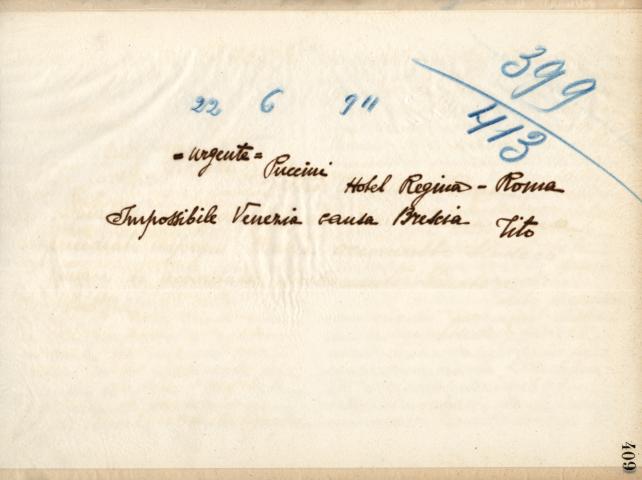 399
413
22 6 911
= urgente = Puccini
Hotel Regina - Roma
Impossibile Venezia causa Brescia
Tito
409